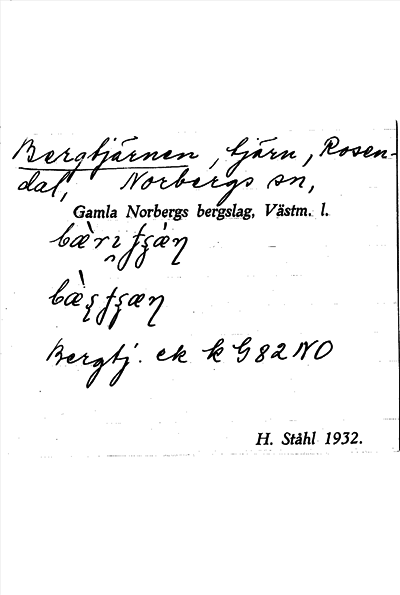 Bergtjärnen, tjärn, Rosen-
dal, Norbergs sn,
Gamla Norbergs bergslag, Västm. l.
Bergtj. ek k G82NO
H. Ståhl 1932.